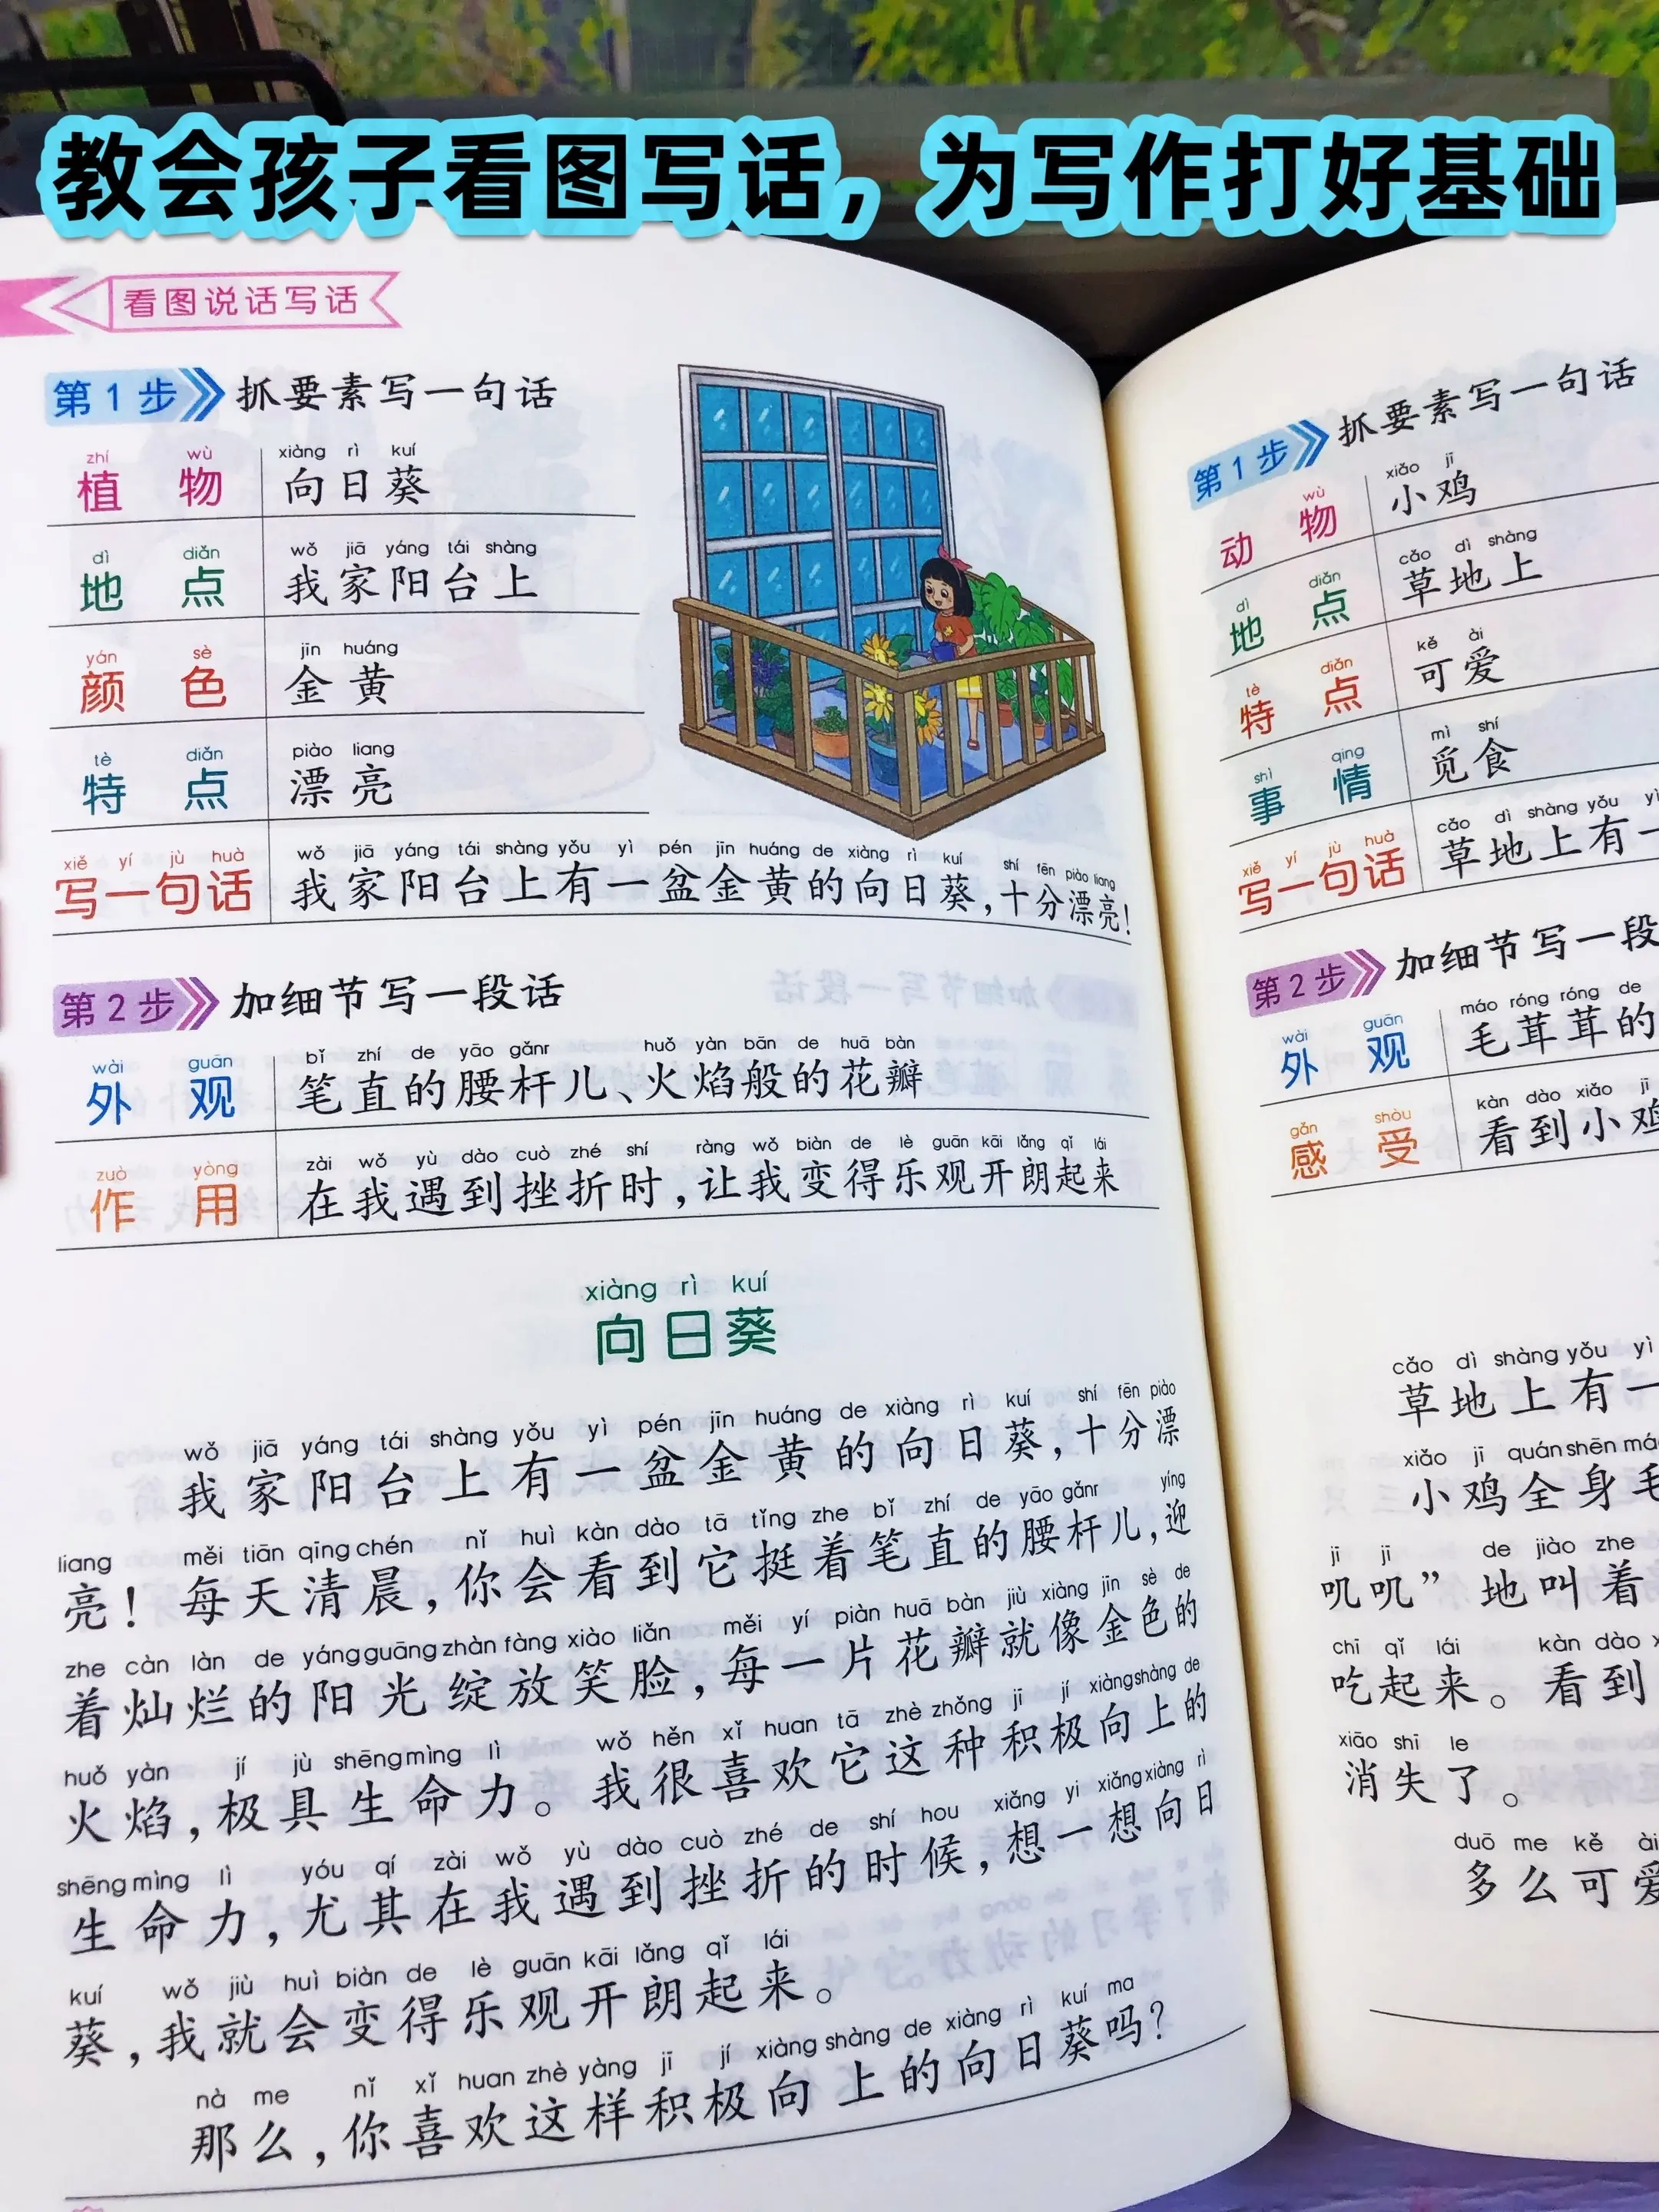 教会孩子看图写话，为写作打好基础
看图说话写话
第1步 抓要素写一句话
zhí wù xiàng rì kuí
植物 向日葵
dì diǎn wǒ jiā yáng tái shàng
地点 我家阳台上
yán sè jīn huáng
颜色 金黄
tè diǎn piào liang
特点 漂亮
xiě yí jù huà wǒ jiā yáng tái shàng yǒu yì pén jīn huáng de xiàng rì kuí shí fēn piào liang
写一句话 我家阳台上有一盆金黄的向日葵，十分漂亮！
第2步 加细节写一段话
wài guān bǐ zhí de yāo gǎnr huǒ yàn bān de huā bàn
外观 笔直的腰杆儿、火焰般的花瓣
zuò yòng zài wǒ yù dào cuò zhé shí ràng wǒ biàn de lè guān kāi lǎng qǐ lái
作用 在我遇到挫折时，让我变得乐观开朗起来
xiàng rì kuí
向日葵
wǒ jiā yáng tái shàng yǒu yì pén jīn huáng de xiàng rì kuí shí fēn piào
我家阳台上有一盆金黄的向日葵，十分漂
liang měi tiān qīng chén nǐ huì kàn dào tā tǐng zhe bǐ zhí de yāo gǎnr yíng
亮！每天清晨，你会看到它挺着笔直的腰杆儿，迎
zhe càn làn de yáng guāng zhàn fàng xiào liǎn měi yí piàn huā bàn jiù xiàng jīn sè de
着灿烂的阳光绽放笑脸，每一片花瓣就像金色的
huǒ yàn jí jù shēng mìng lì wǒ hěn xǐ huan tā zhè zhǒng jī jí xiàng shàng de
火焰，极具生命力。我很喜欢它这种积极向上的
shēng mìng lì yóu qí zài wǒ yù dào cuò zhé de shí hou xiǎng yi xiǎng xiàng rì
生命力，尤其在我遇到挫折的时候，想一想向日
kuí wǒ jiù huì biàn de lè guān kāi lǎng qǐ lái
葵，我就会变得乐观开朗起来。
nà me nǐ xǐ huan zhè yàng jī jí xiàng shàng de xiàng rì kuí ma
那么，你喜欢这样积极向上的向日葵吗？
第1步 抓要素写一句话
wù xiǎo jī
动物 小鸡
dì diǎn cǎo dì shàng
地点 草地上
tè diǎn kě ài
特点 可爱
shì qing mì shí
事情 觅食
xiě yí jù huà cǎo dì shàng yǒu yì
写一句话 草地上有一
第2步 加细节写一段
wài guān máo róng róng de
外观 毛茸茸的
gǎn shòu kàn dào xiǎo jī
感受 看到小鸡
cǎo dì shàng yǒu yì
草地上有一
xiǎo jī quán shēn máo
小鸡全身毛
jī jī de jiào zhe
叽叽”地叫着
chī qǐ lái kàn dào
吃起来。看到
xiāo shī le
消失了。
duō me kě ài
多么可爱